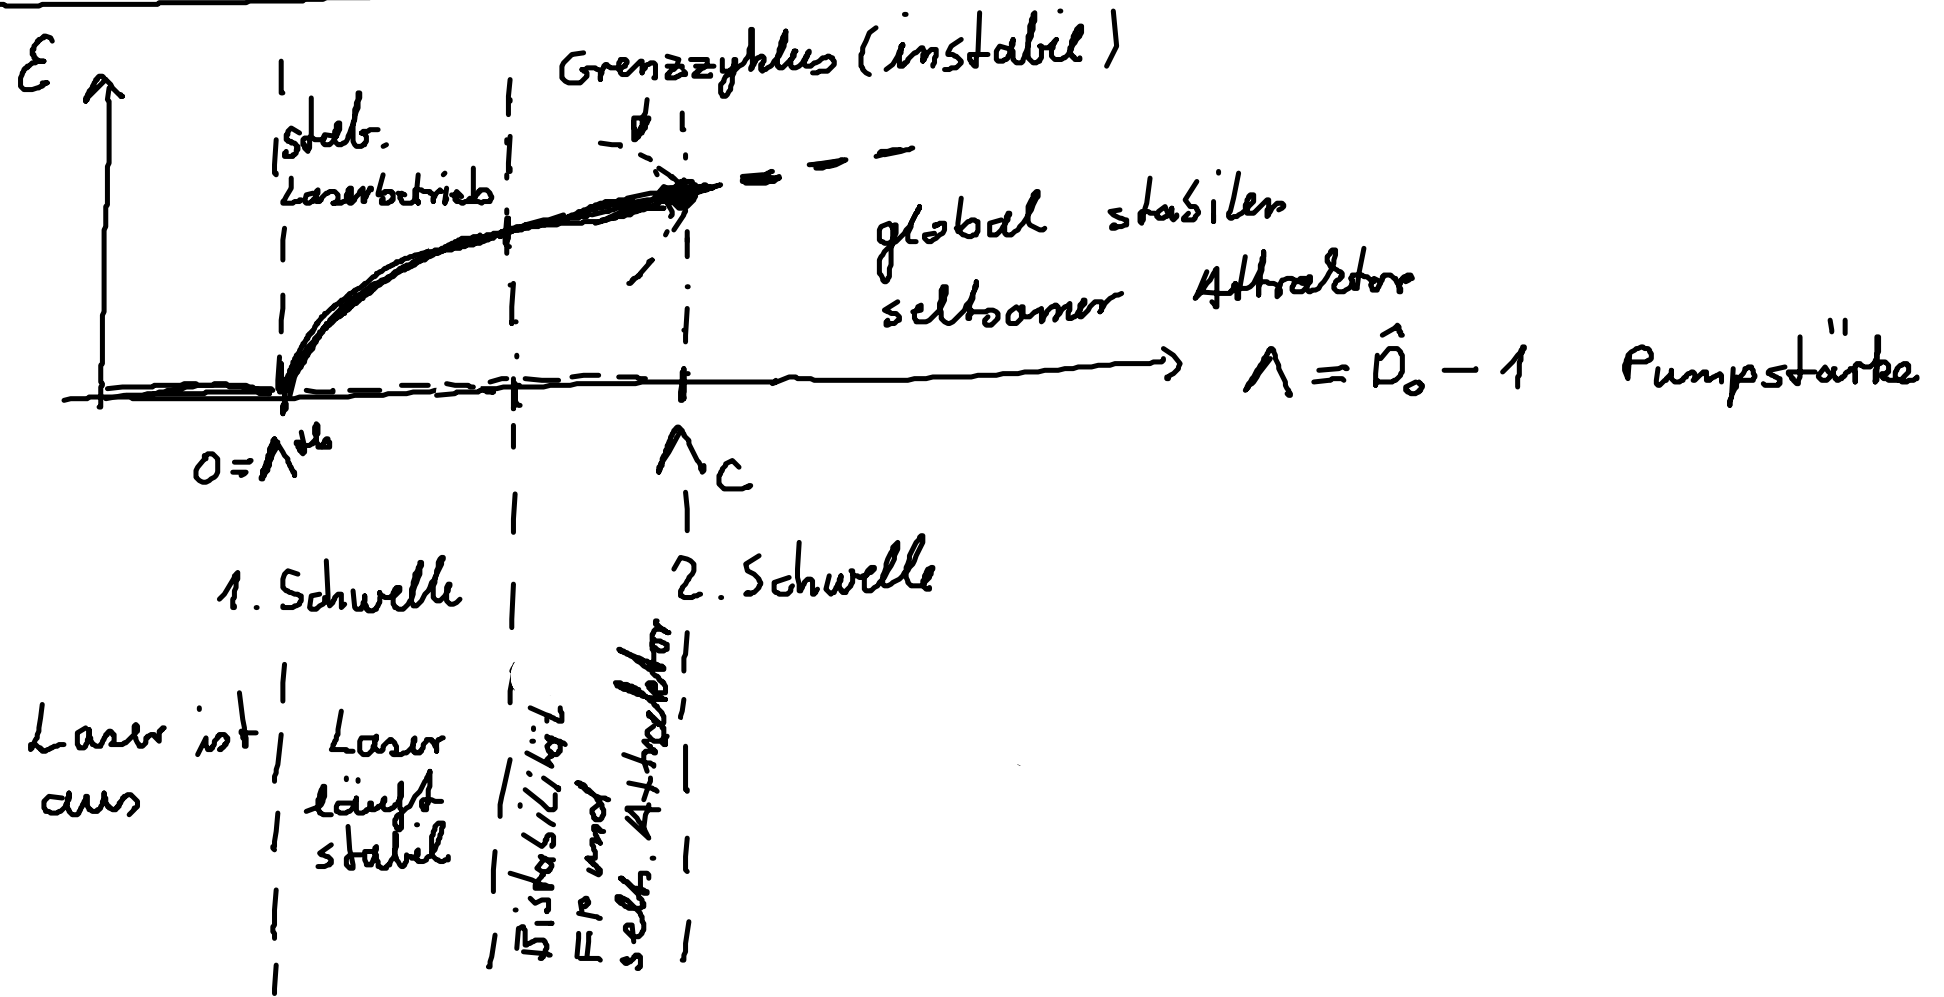 Grenzzyklus (instabil)
ℰ
stab.
Laserbetrieb
global stabiler
seltsamer Attraktor
Λ = D̂₀ − 1 Pumpstärke
0 = Λᵗʰ
Λ_C
1. Schwelle
2. Schwelle
Laser ist
aus
Laser
läuft
stabil
Bistabilität
FP und
selts. Attraktor